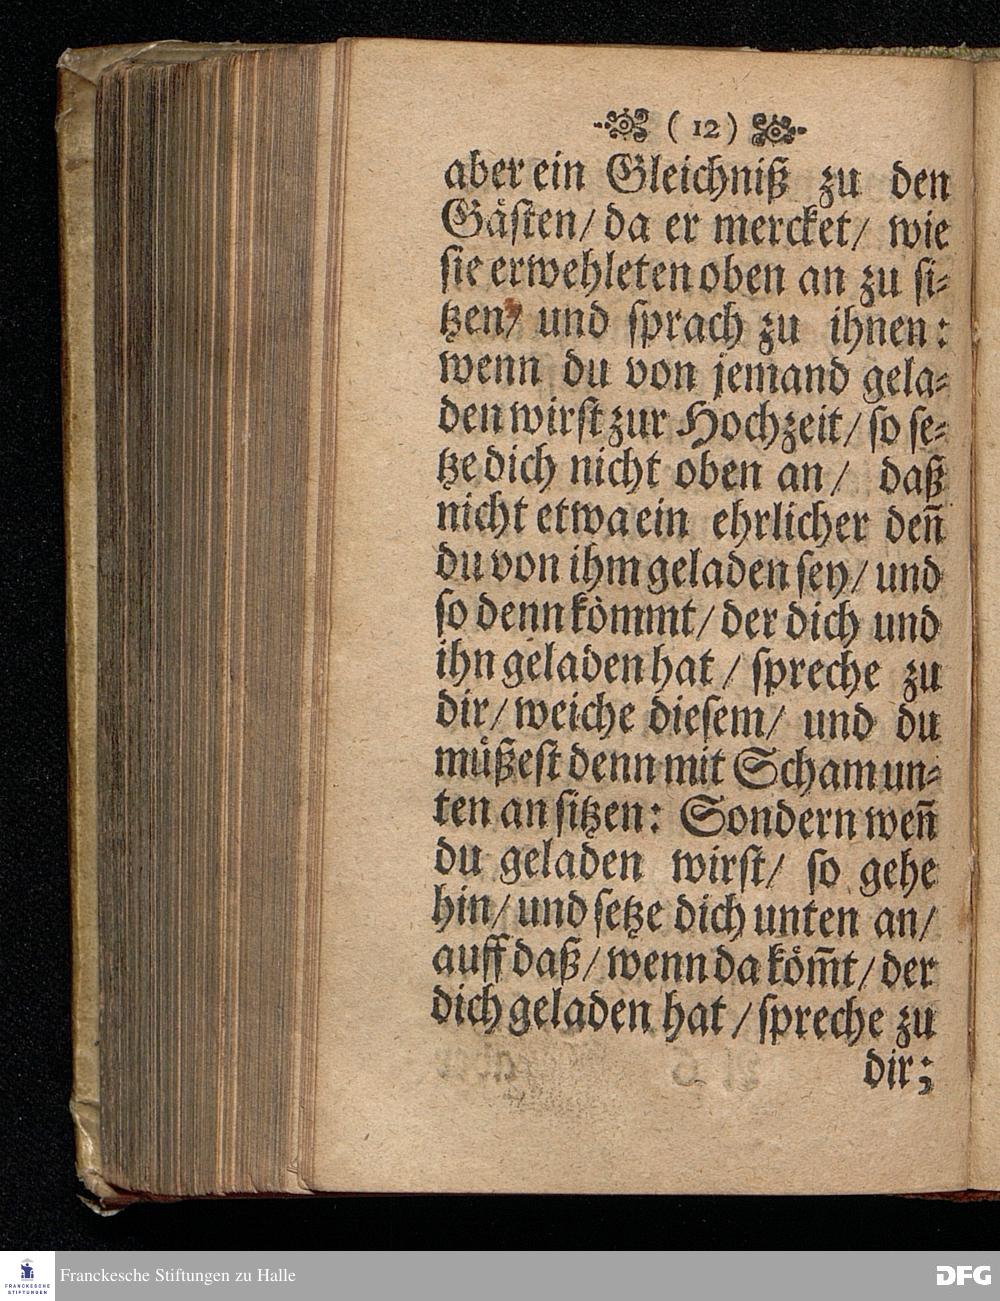 ( 12 )
aber ein Gleichniß zu den
Gästen/ da er mercket/ wie
sie erwehleten oben an zu si-
tzen/ und sprach zu ihnen:
wenn du von jemand gela-
den wirst zur Hochzeit/ so se-
tze dich nicht oben an/ daß
nicht etwa ein ehrlicher den̄
du von ihm geladen sey/ und
so denn kömmt/ der dich und
ihn geladen hat/ spreche zu
dir/ weiche diesem/ und du
müßest denn mit Scham un-
ten an sitzen: Sondern wen̄
du geladen wirst/ so gehe
hin/ und setze dich unten an/
auff daß/ wenn da köm̄t/ der
dich geladen hat/ spreche zu
dir;
FRANCKESCHE
STIFTUNGEN
Franckesche Stiftungen zu Halle
DFG